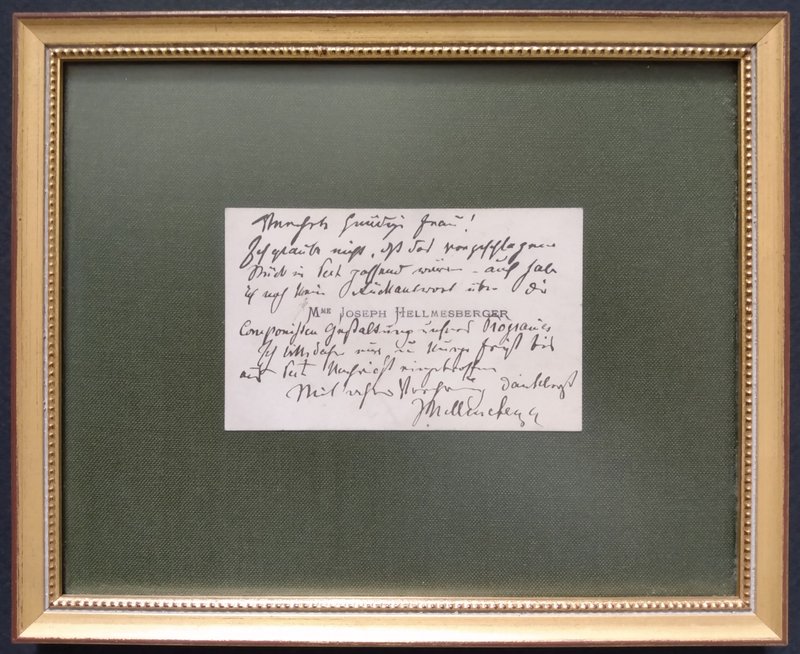 Verehrte gnädige Frau!
Ich glaube nicht, daß das vorgeschlagene
Stück in Pest passend wären - auch habe
ich noch keine Rückantwort über die
MME JOSEPH HELLMESBERGER
Componisten Gestaltung unseres Programes
Ich bitte daher nur um kurze Frist bis
aus Pest Nachricht eingetroffen
Mit Verehrung dankbarst
JHellmesberger